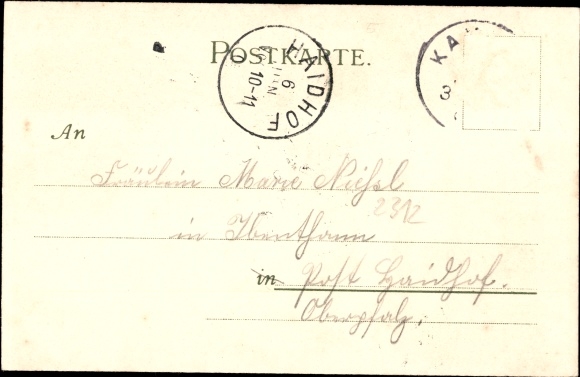 POSTKARTE.
HAIDHOF
6 JUN
10-11
KA
3
An
Fräulein Marie Niessl
2312
in Ibenthann
in Post Haidhof.
Oberpfalz.